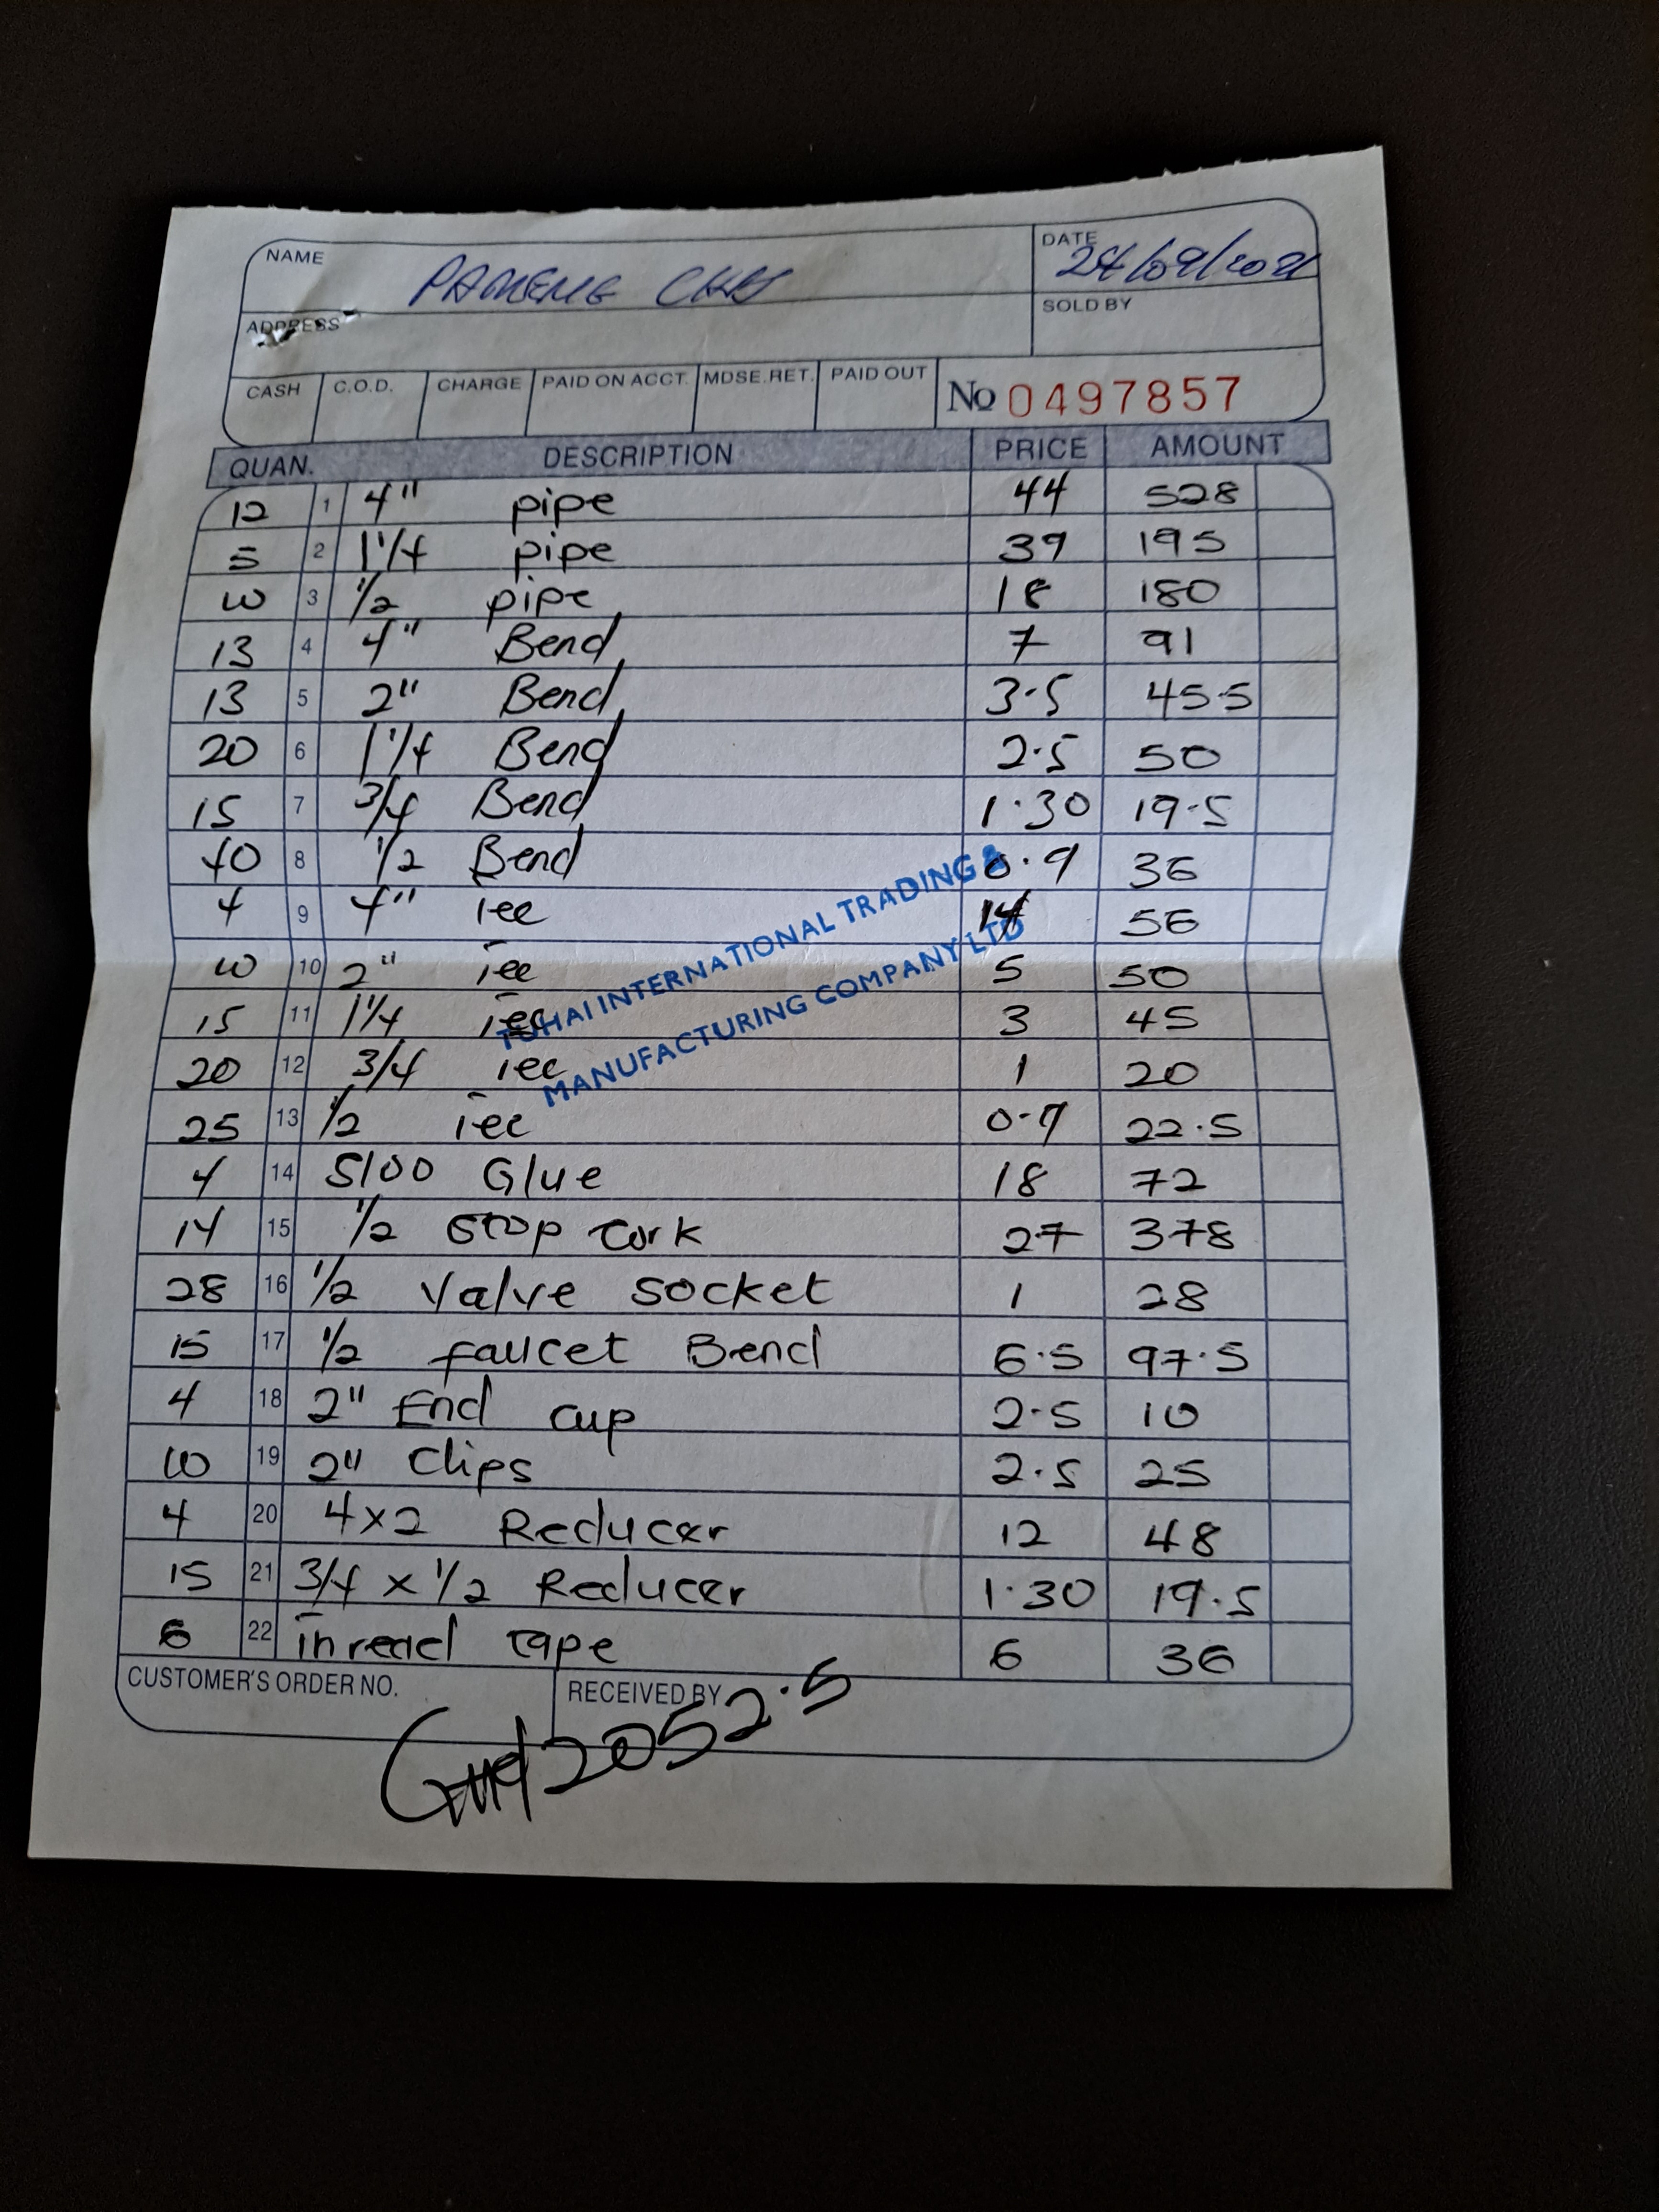 NAME
DATE
ADDRESS
SOLD BY
CASH C.O.D. CHARGE PAID ON ACCT. MDSE.RET. PAID OUT No 0497857
QUAN. DESCRIPTION PRICE AMOUNT
12 1 4" pipe 44 528
5 2 1 1/4 pipe 39 195
10 3 1/2 pipe 18 180
13 4 4" Bend 7 91
13 5 2" Bend 3.5 45.5
20 6 1 1/4 Bend 2.5 50
15 7 3/4 Bend 1.30 19.5
40 8 1/2 Bend 0.9 36
4 9 4" Tee 14 56
10 10 2" Tee 5 50
15 11 1 1/4 Tee 3 45
20 12 3/4 Tee 1 20
25 13 1/2 Tee 0.9 22.5
4 14 S100 Glue 18 72
14 15 1/2 Stop Cork 27 378
28 16 1/2 Valve Socket 1 28
15 17 1/2 faucet Bend 6.5 97.5
4 18 2" End cup 2.5 10
10 19 2" Clips 2.5 25
4 20 4x2 Reducer 12 48
15 21 3/4 x 1/2 Reducer 1.30 19.5
6 22 Thread Tape 6 36
TUHAI INTERNATIONAL TRADING &
MANUFACTURING COMPANY LTD
CUSTOMER'S ORDER NO. RECEIVED BY
2052.5